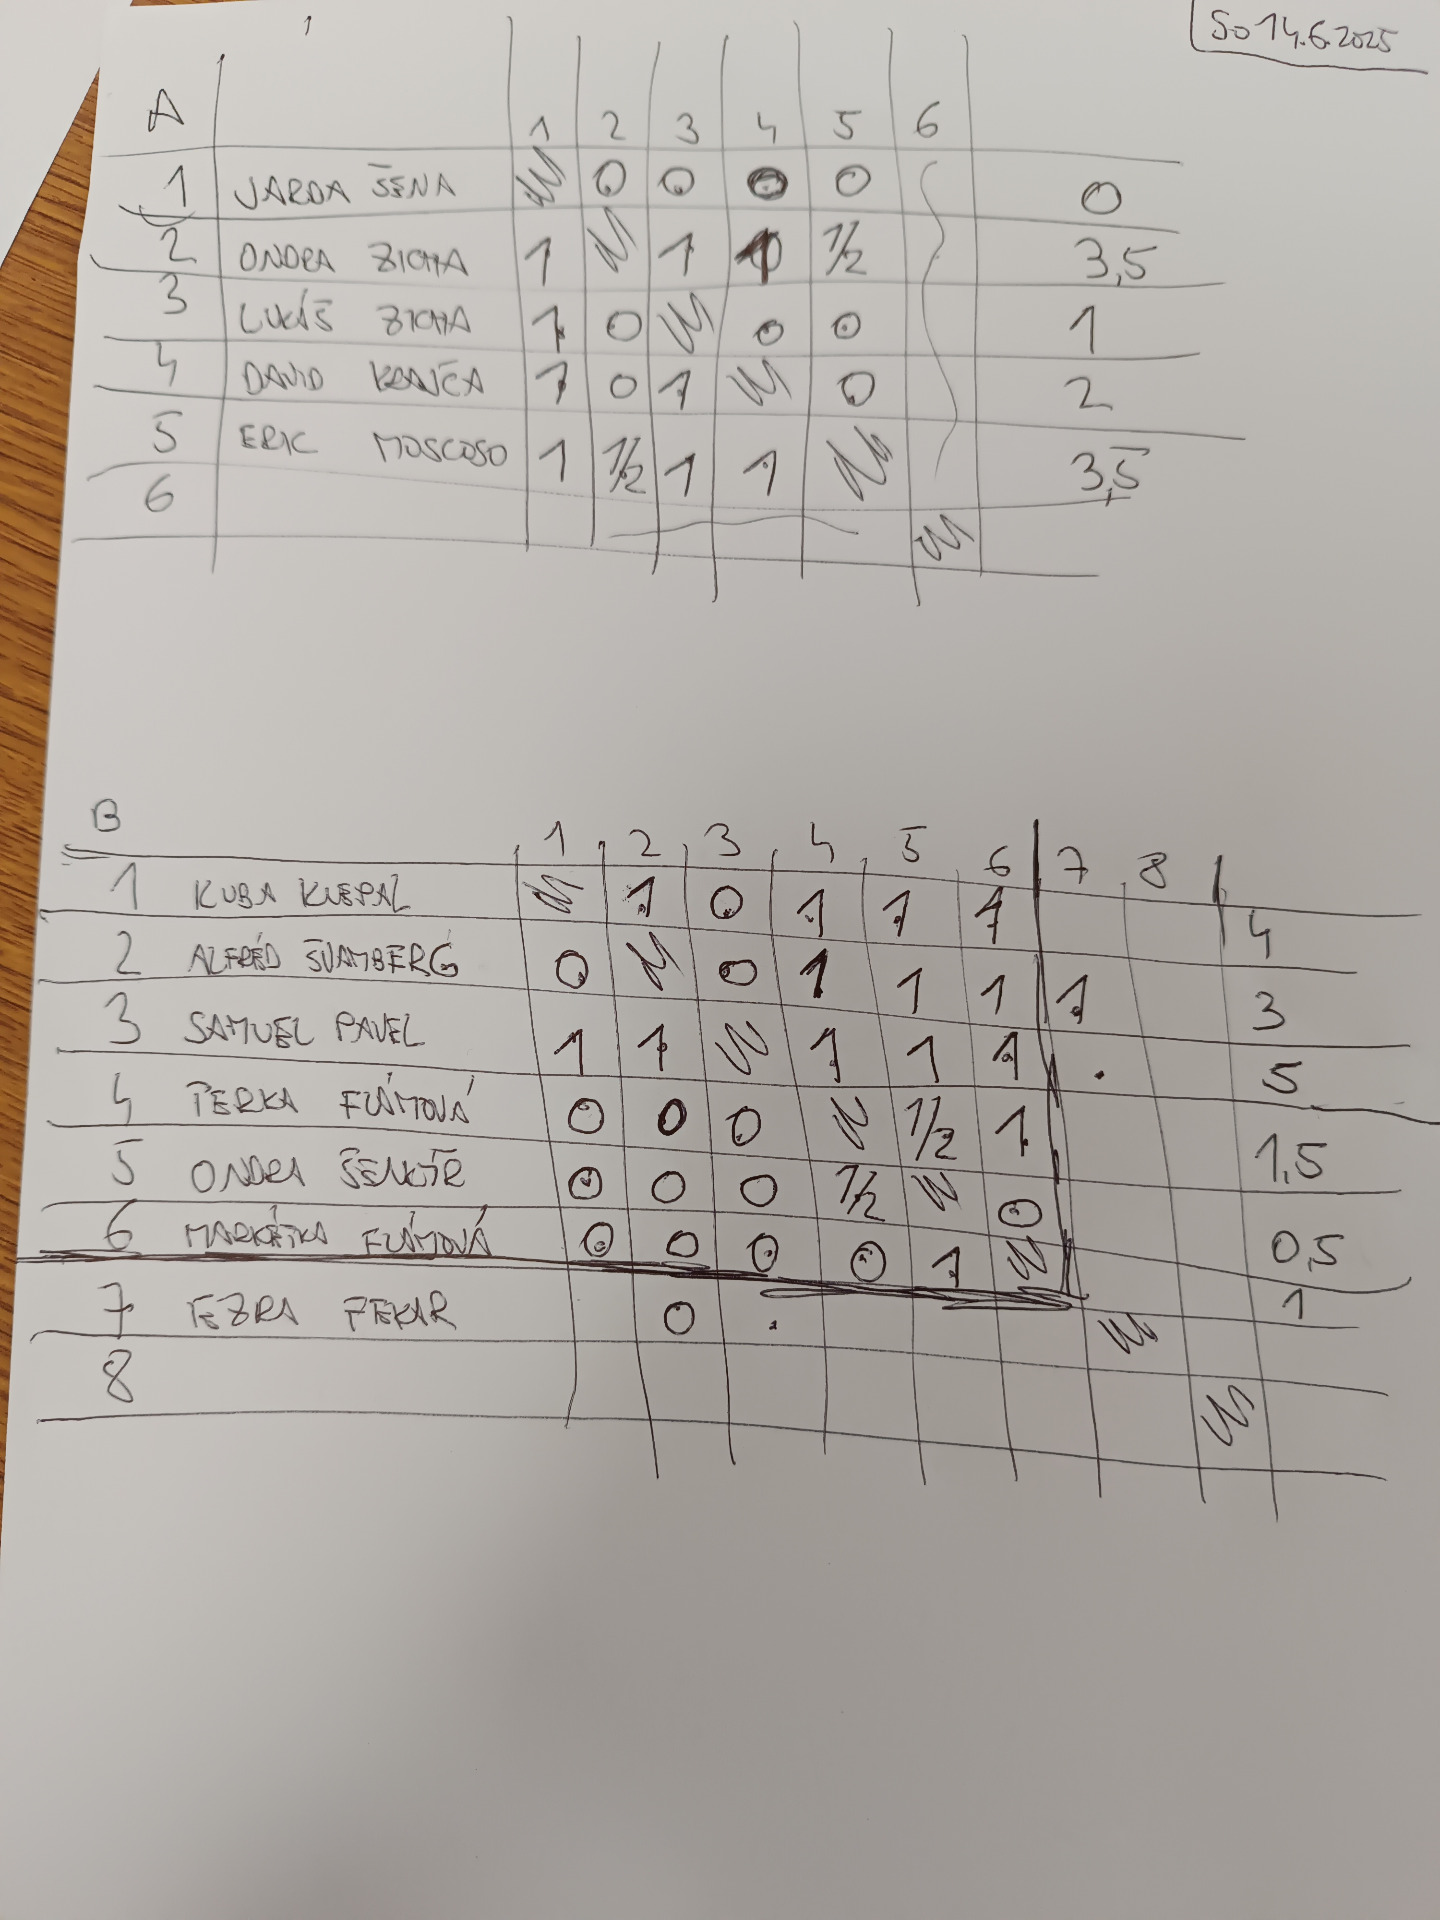 So 14.6.2025
A 1 2 3 4 5 6
1 JARDA ŠENA 0 0 0 0 0
2 ONDRA ZICHA 1 1 1 1/2 3,5
3 LUKÁŠ ZICHA 1 0 0 0 1
4 DAVID 1 0 1 0 2
5 ERIC MOSCOSO 1 1/2 1 1 3,5
6
B 1 2 3 4 5 6 7 8
1 KUBA KLEPAL 1 0 1 1 1 4
2 ALFRÉD ŠVAMBERG 0 0 1 1 1 1 3
3 SAMUEL PAVEL 1 1 1 1 1 . 5
4 TERKA FLÁMOVÁ 0 0 0 1/2 1 1,5
5 ONDRA 0 0 0 1/2 0 0,5
6 MARKÉTKA FLÁMOVÁ 0 0 0 0 1 1
7 EZRA PEKAR 0 .
8